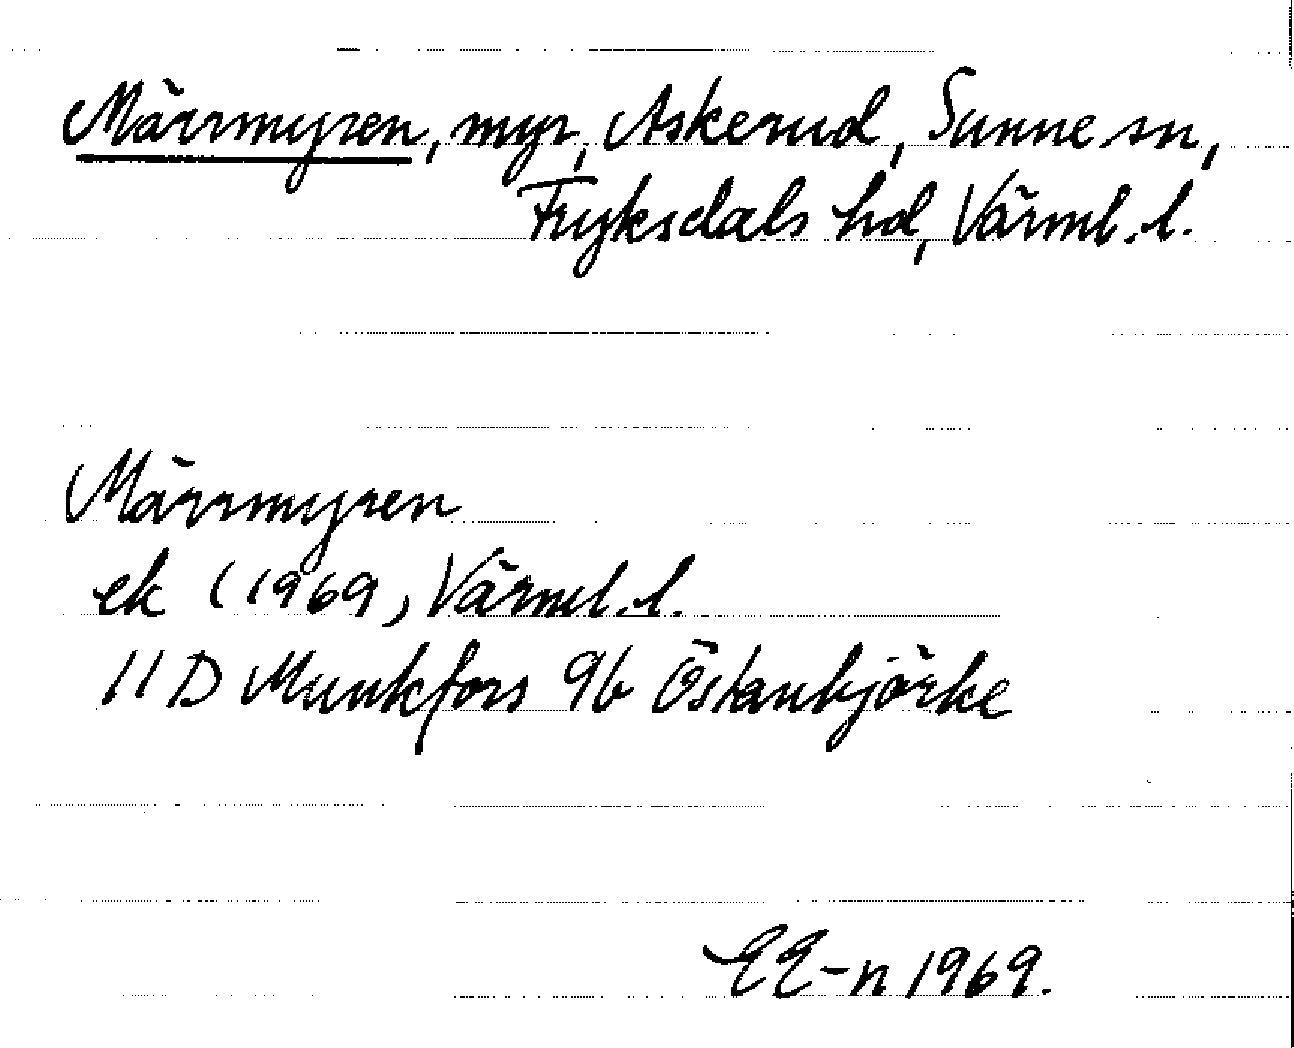 Märrmyren, myr, Askerud, Sunne sn,
Fryksdals hd, Värml. l.
Märrmyren
ek (1969, Värml. l.
11 D Munkfors 9b Östanbjörke
EE-n 1969.